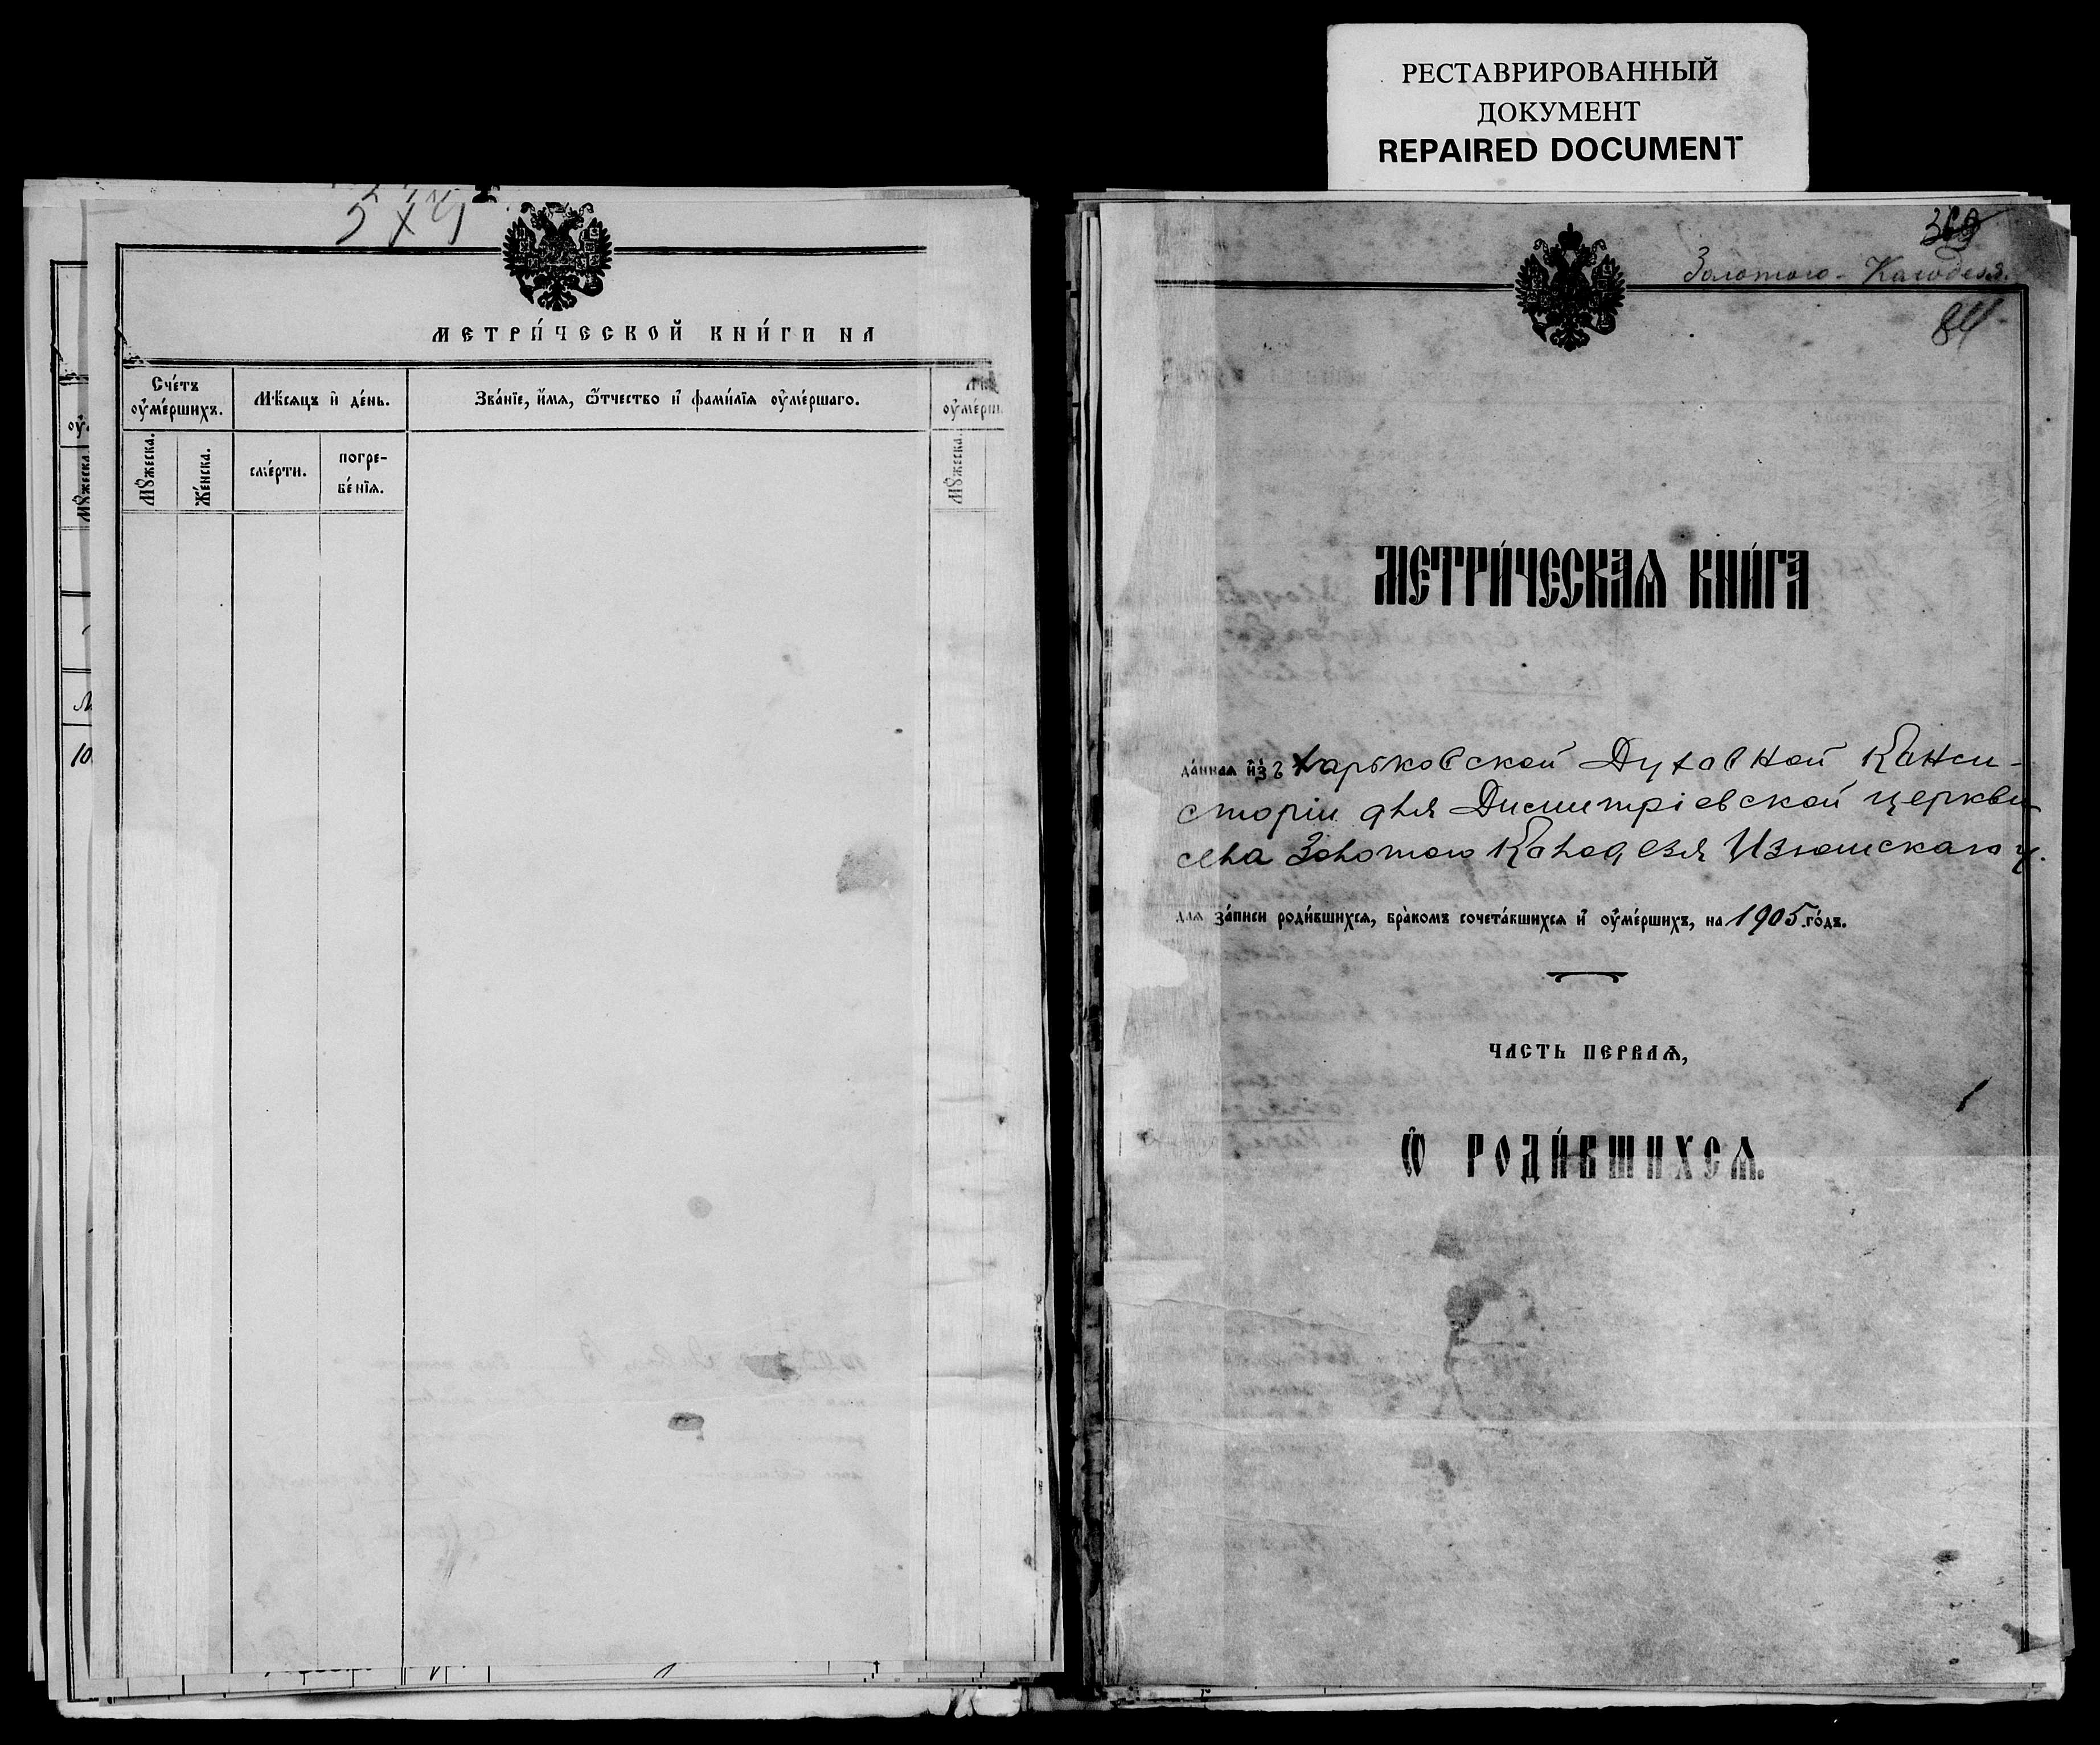 РЕСТАВРИРОВАННЫЙ
ДОКУМЕНТ
REPAIRED DOCUMENT
МЕТРИ́ЧЕСКОЙ КНИ́ГИ НА
Сче́тъ
оу҆ме́ршихъ.
Мѣ́сяцъ и҆ де́нь.
Зва́нїе, и҆́мя, ѻ҆́тчество и҆ фами́лїя оу҆ме́ршаго.
оу҆ме́рш
Мꙋ́жеска.
Же́нска.
сме́рти.
погре-
бе́нїя.
Мꙋ́жеска.
Золотого-Колодезя.
84
МЕТРИ́ЧЕСКАѦ КНИ́ГА
да́нная и҆зъ Харьковской Духовной Конси-
сторіи для Димитріевской церкви
села Золотого Колодезя Изюмскаго у.
для за́писи роди́вшихся, бра́комъ сочета́вшихся и҆ оу҆ме́ршихъ, на 1905 го́дъ.
ЧАСТЬ ПЕРВАѦ,
Ѽ РОДИ́ВШИХСѦ.